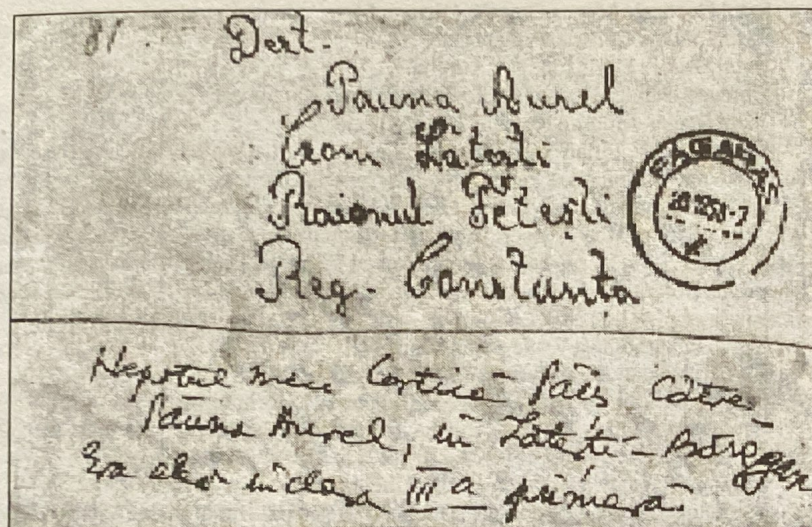 81.
Dest.
Pauna Aurel
Com Lătești
Raionul Fetești
Reg. Constanța
FĂGĂRAȘ
Nepotul meu Costică Păiș către
Păuna Aurel, în Lătești - Bărăgan
Era elev în clasa III a primară